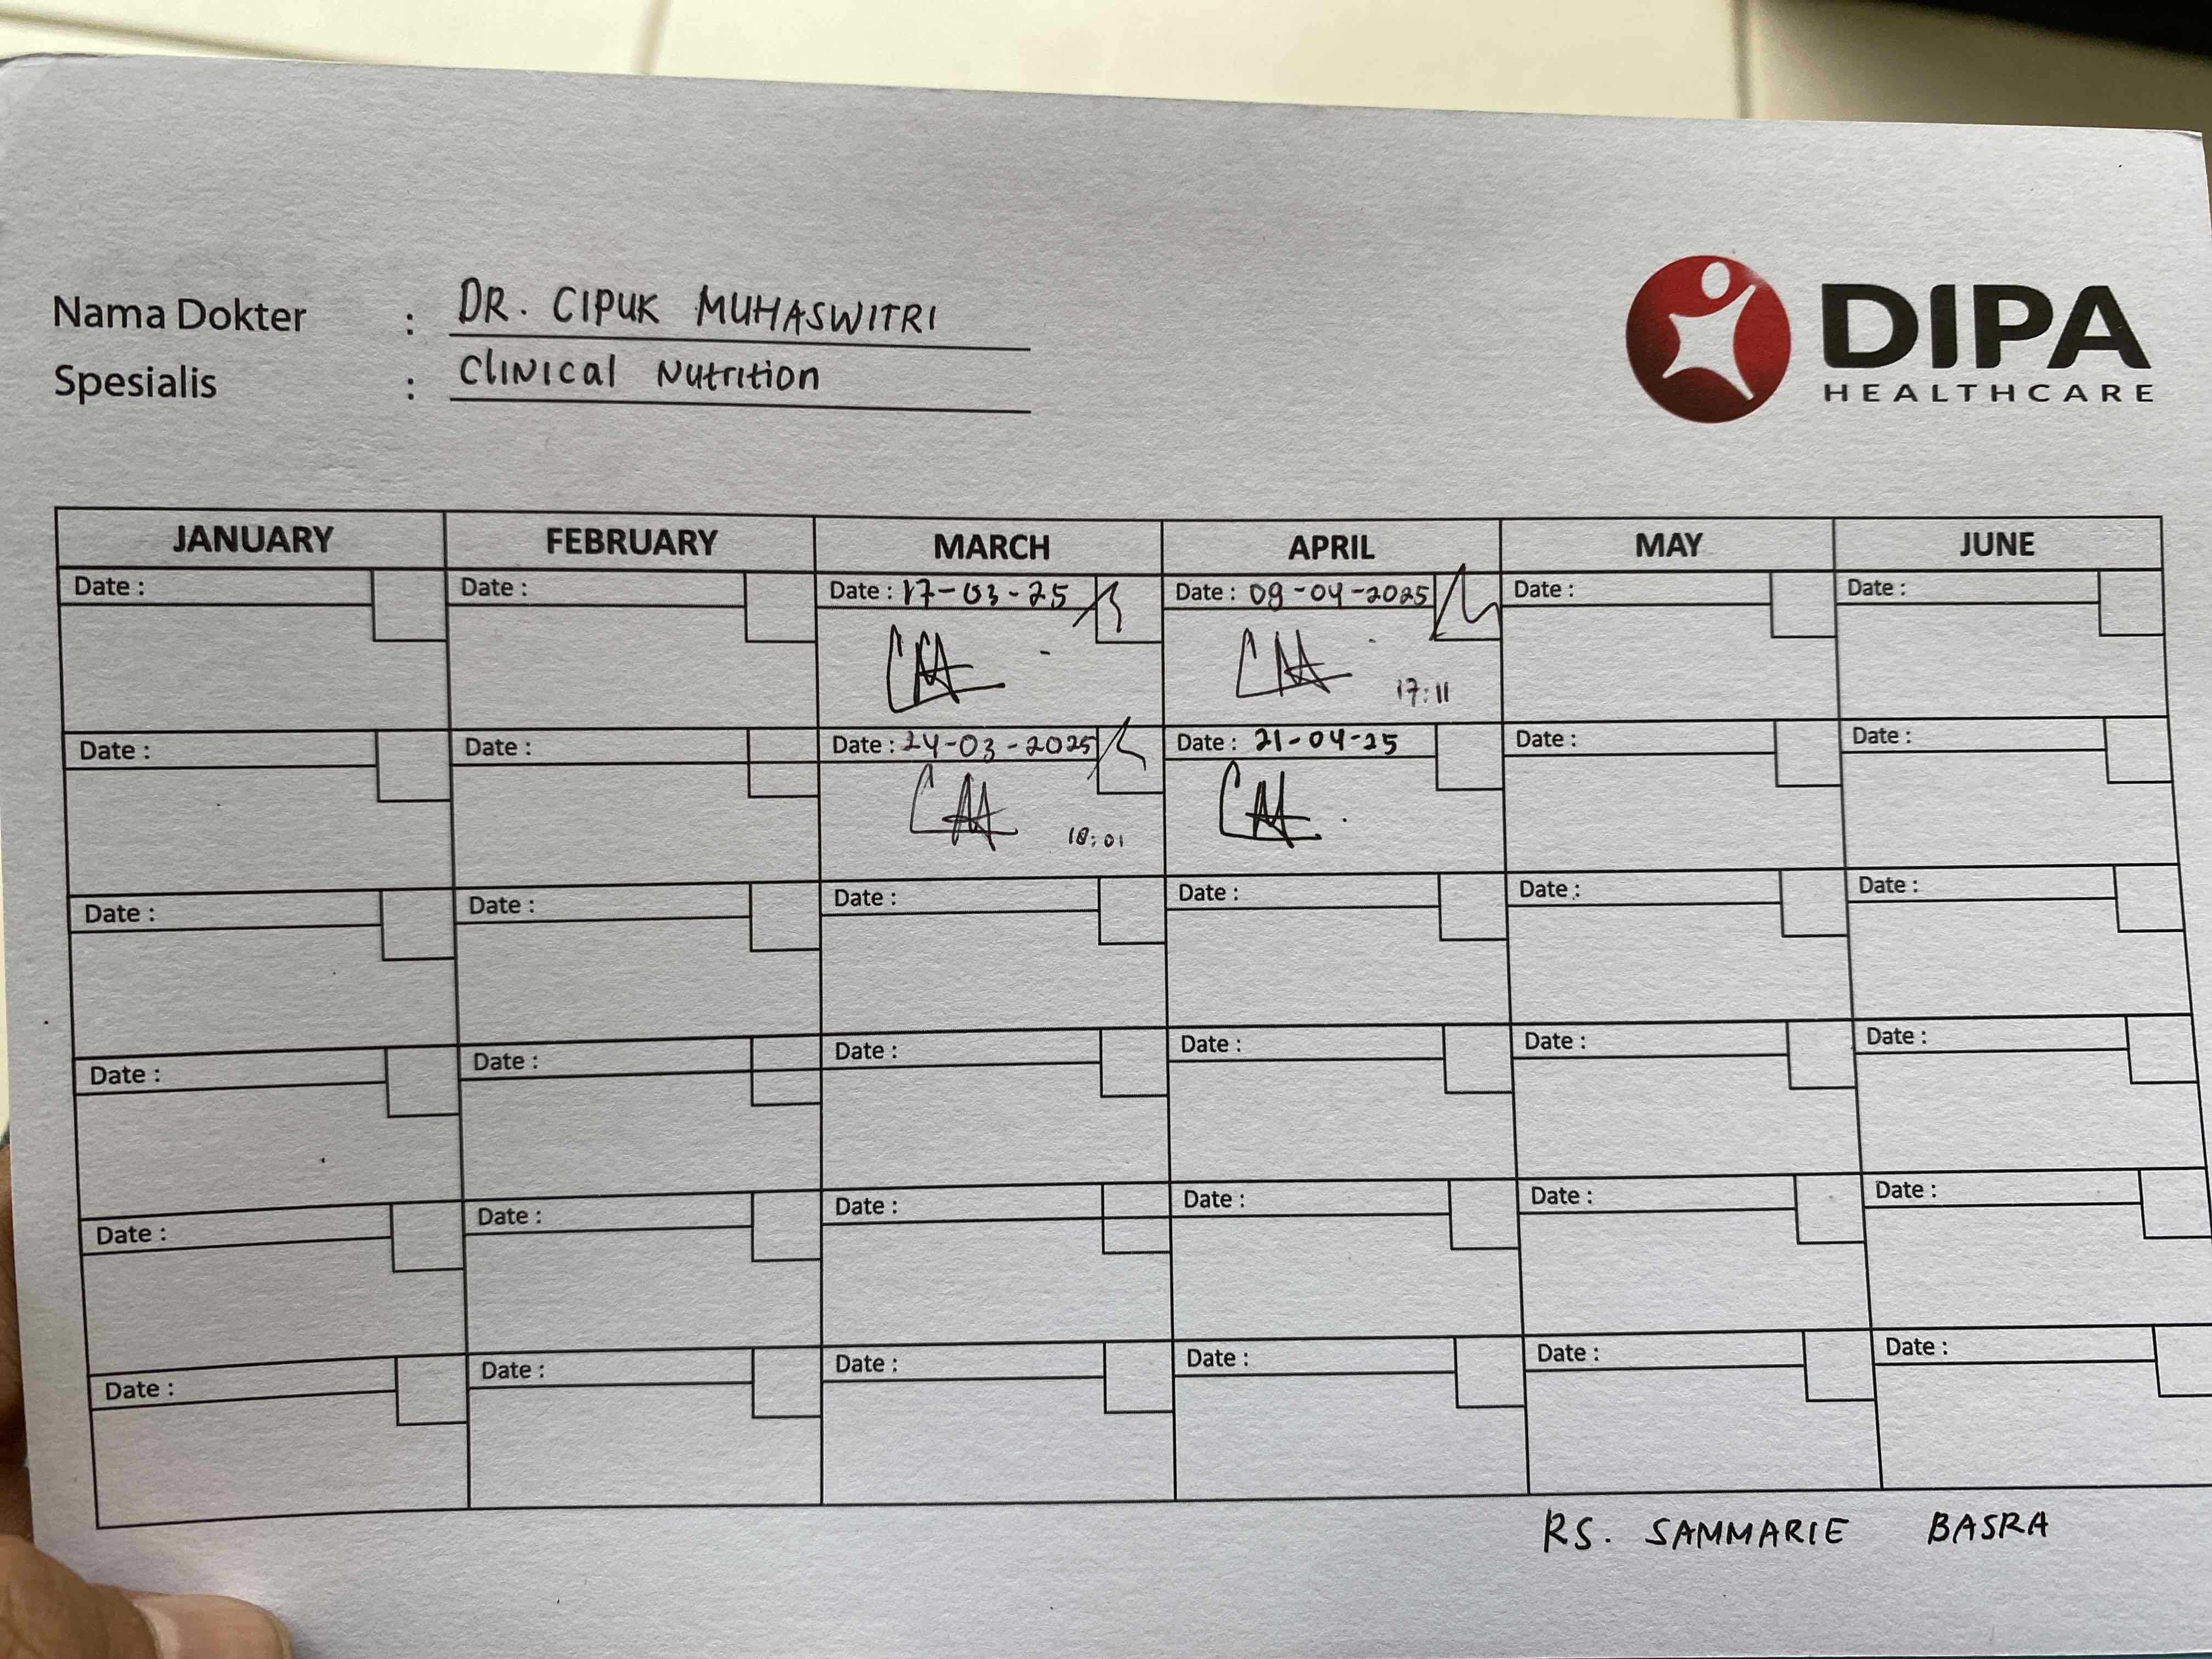 Nama Dokter : DR. CIPUK MUHASWITRI
Spesialis : Clinical Nutrition
DIPA
HEALTHCARE
JANUARY FEBRUARY MARCH APRIL MAY JUNE
Date : Date : Date : 17-03-25 Date : 09-04-2025 Date : Date :
17:11
Date : Date : Date : 24-03-2025 Date : 21-04-25 Date : Date :
18:01
Date : Date : Date : Date : Date : Date :
Date : Date : Date : Date : Date : Date :
Date : Date : Date : Date : Date : Date :
Date : Date : Date : Date : Date : Date :
RS. SAMMARIE BASRA